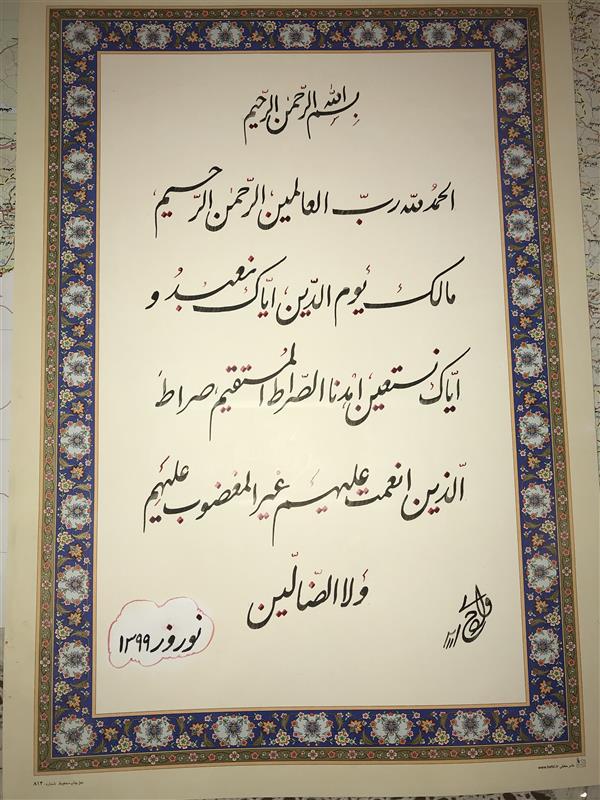 بِسمِ اللهِ الرّحمنِ الرّحیم
الحمدُ لله ربّ العالمین الرّحمنِ الرّحیم
مالکِ یوم الدّین ایّاک نعبدُ و
ایّاک نستعین اهدنا الصّراط المستقیم صراط
الّذین انعمت علیهم غیر المغضوب علیهم
ولا الضّالّین
نوروز ۱۳۹۹
حق چاپ محفوظ شماره: ۸۱۲
www.hafizi.ir